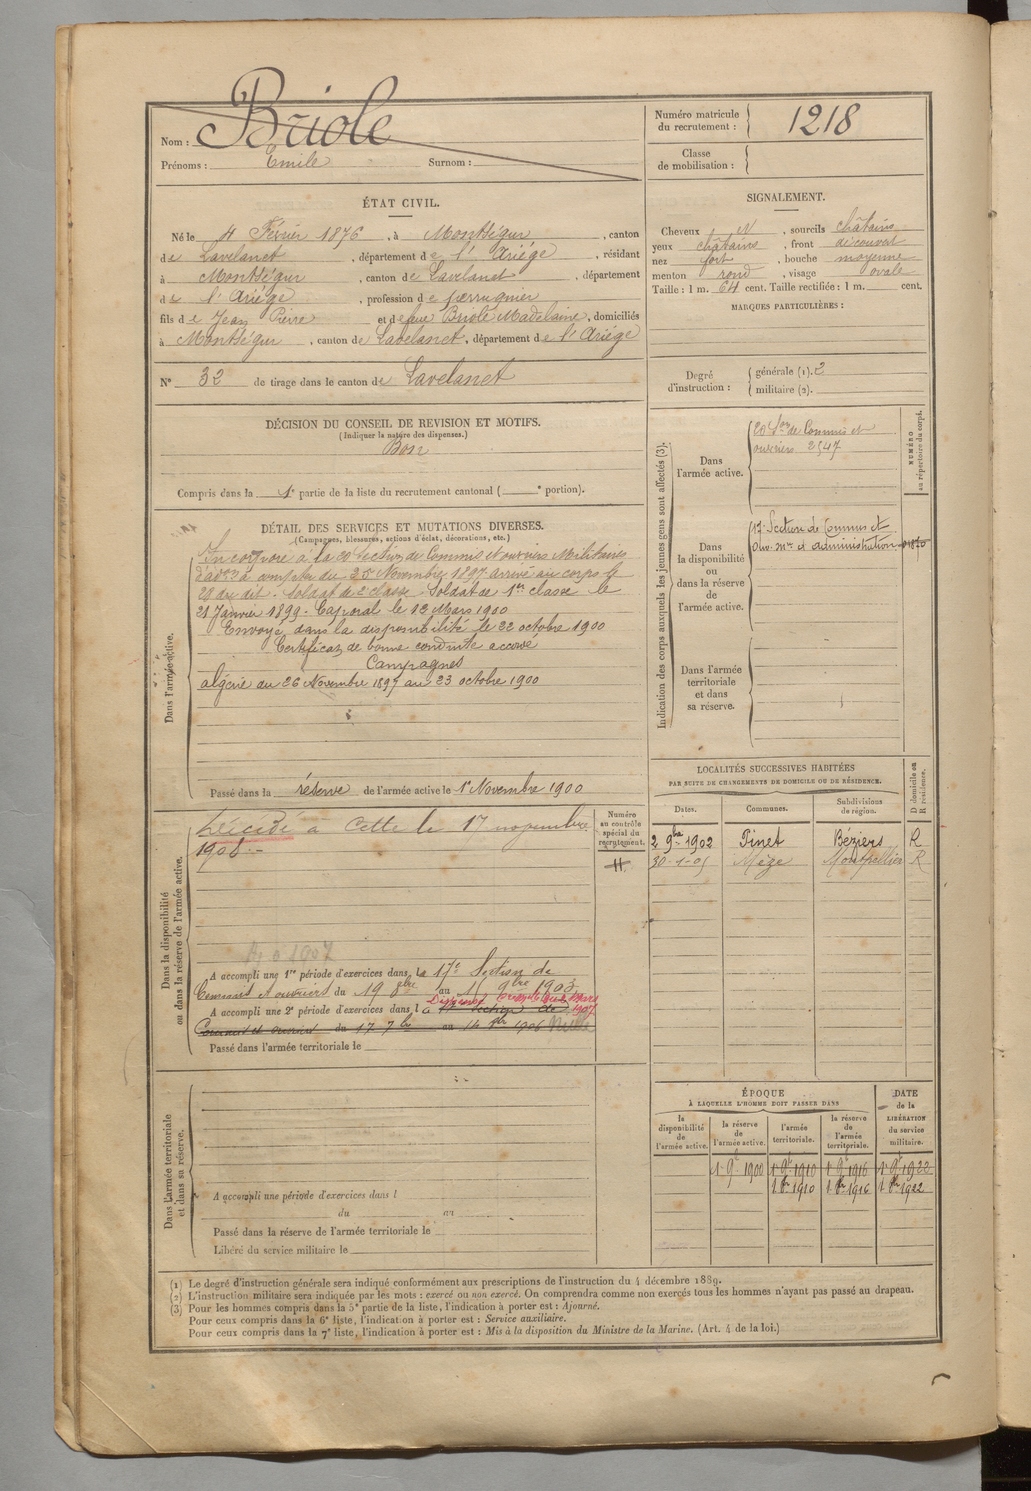 Nom : Briole
Prénoms : Emile Surnom :
Numéro matricule
du recrutement : 1218
Classe
de mobilisation :
ÉTAT CIVIL.
Né le 4 Février 1876, à Montségur, canton
de Lavelanet, département de l'Ariége, résidant
à Montségur, canton de Lavelanet, département
de l'Ariége, profession de
fils de Jean Pierre et de feue Briole Madelaine, domiciliés
à Montségur, canton de Lavelanet, département de l'Ariége
N° 32 de tirage dans le canton de Lavelanet
SIGNALEMENT.
Cheveux N, sourcils châtains
yeux châtains, front découvert
nez fort, bouche moyenne
menton rond, visage ovale
Taille : 1 m. 64 cent. Taille rectifiée : 1 m. cent.
MARQUES PARTICULIÈRES :
Degré
d'instruction :
générale (1). 2
militaire (2).
DÉCISION DU CONSEIL DE REVISION ET MOTIFS.
(Indiquer la nature des dispenses.)
Bon
Compris dans la 1e partie de la liste du recrutement cantonal ( e portion).
DÉTAIL DES SERVICES ET MUTATIONS DIVERSES.
(Campagnes, blessures, actions d'éclat, décorations, etc.)
Dans l'armée active.
Incorporé à la 20 Section de Commis et ouvriers Militaires
à compter du 25 Novembre 1897 arrivé au corps le
29 du dit. Soldat de 2e classe. Soldat de 1ere classe le
21 Janvier 1899. Caporal le 12 Mars 1900
Envoyé dans la disponibilité le 22 octobre 1900
Certificat de bonne conduite accordé
Campagnes
algérie du 26 Novembre 1897 au 23 octobre 1900
Passé dans la réserve de l'armée active le 1er Novembre 1900
Indication des corps auxquels les jeunes gens sont affectés (3).
NUMÉRO
au répertoire du corps.
Dans
l'armée active.
20 Son de Commis et
ouvriers 2547
Dans
la disponibilité
ou
dans la réserve
de
l'armée active.
17e Section de Commis et
Ouv. Mres et administration 01870
Dans l'armée
territoriale
et dans
sa réserve.
LOCALITÉS SUCCESSIVES HABITÉES
PAR SUITE DE CHANGEMENTS DE DOMICILE OU DE RÉSIDENCE.
Dates. Communes. Subdivisions
de région.
D domicile ou
R résidence.
2 9bre 1902 Pinet Béziers R
30-1-05 Mèze Montpellier R
Dans la disponibilité
ou dans la réserve de l'armée active.
Numéro
au contrôle
spécial du
recrutement.
Décédé à Cette le 17 novembre
A accompli une 1re période d'exercices dans la 17e Section de
Commis et ouvriers du 19 8bre au 15 9bre 1903
A accompli une 2e période d'exercices dans la 17e Section de
Commis et ouvriers du 17 7bre au 14 8bre 1906
Passé dans l'armée territoriale le
Dans l'armée territoriale
et dans sa réserve.
A accompli une période d'exercices dans l
du au
Passé dans la réserve de l'armée territoriale le
Libéré du service militaire le
ÉPOQUE
À LAQUELLE L'HOMME DOIT PASSER DANS
DATE
de la
LIBÉRATION
du service
militaire.
la
disponibilité
de
l'armée active.
la réserve
de
l'armée active.
l'armée
territoriale.
la réserve
de
l'armée
territoriale.
1er 9bre 1900 1er 9bre 1910 1er 9bre 1916 1er 9bre 1922
1 8bre 1910 1 8bre 1916 1 8bre 1922
(1) Le degré d'instruction générale sera indiqué conformément aux prescriptions de l'instruction du 4 décembre 1889.
(2) L'instruction militaire sera indiquée par les mots : exercé ou non exercé. On comprendra comme non exercés tous les hommes n'ayant pas passé au drapeau.
(3) Pour les hommes compris dans la 5e partie de la liste, l'indication à porter est : Ajourné.
Pour ceux compris dans la 6e liste, l'indication à porter est : Service auxiliaire.
Pour ceux compris dans la 7e liste, l'indication à porter est : Mis à la disposition du Ministre de la Marine. (Art. 4 de la loi.)